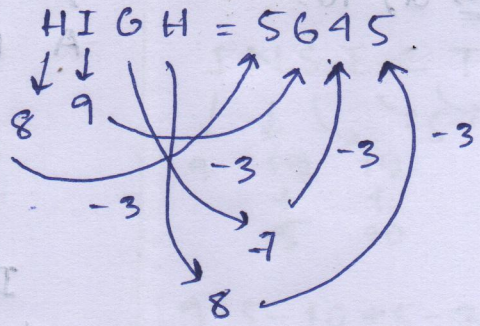 HIGH = 5645
8 9
-3 -3 -3 -3
7
8